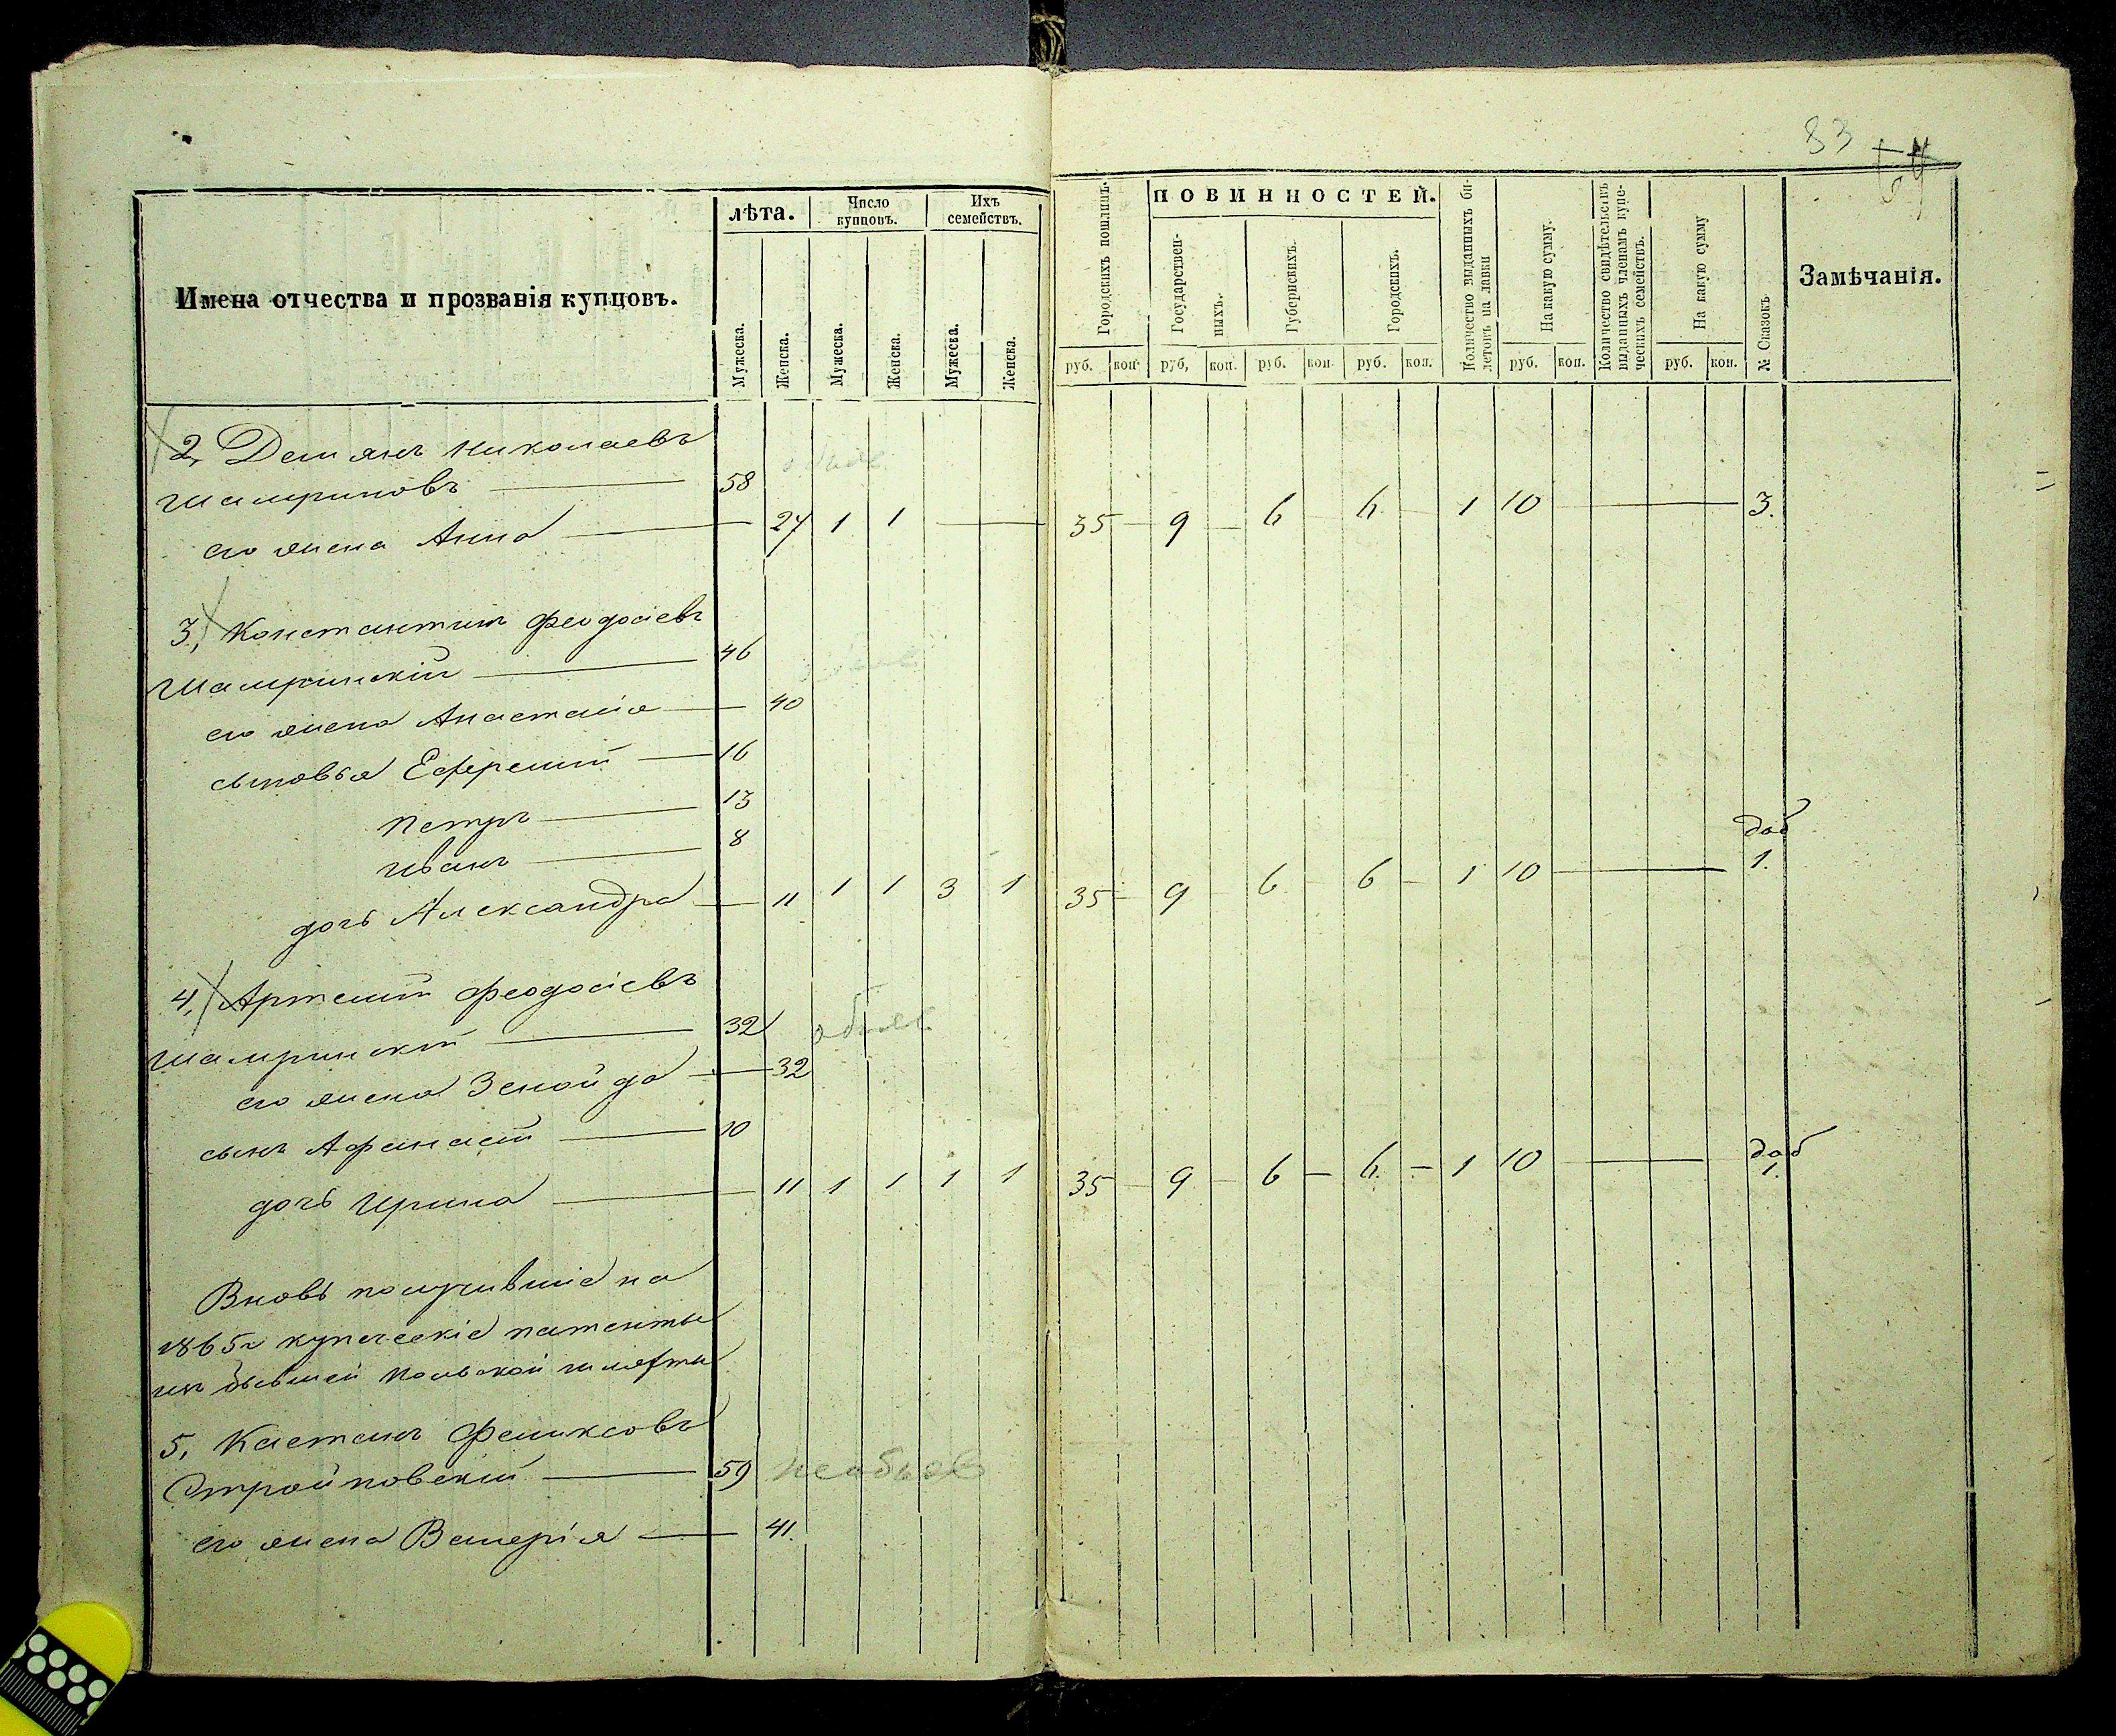 83
Имена отчества и прозванія купцовъ.
лѣта.
Число купцовъ.
Ихъ семействъ.
Мужеска.
Женска.
Мужеска.
Женска.
Мужеска.
Женска.
Городскихъ пошлинъ.
ПОВИННОСТЕЙ.
Государствен-
ныхъ.
Губернскихъ.
Городскихъ.
Количество выданныхъ би-
летовъ на лавки
На какую сумму.
Количество свидѣтельствъ
выданныхъ членамъ купе-
ческихъ семействъ.
На какую сумму
№ Сказокъ
Замѣчанія.
руб. коп. руб, коп. руб. коп. руб. коп. руб. коп. руб. коп.
2, Демьянъ Николаевъ
58
его жена Анна — 24 1 1 — 35 — 9 — 6 — 6 — 1 10 — 3.
3, Константинъ Феодосіевъ
Шамринскій — 46
его жена Анастасія — 40
сыновья Ефремій — 16
Петръ — 13
Иванъ — 8
дочь Александра — 11 1 1 3 1 35 — 9 — 6 — 6 — 1 10 — доб 1.
4, Артемій Феодосіевъ
Шамринскій — 32 объяв.
его жена Зенойда — 32
сынъ Афанасій — 10
дочь Ирина — 11 1 1 1 1 35 — 9 — 6 — 6. — 1 10 — доб 1.
Вновь получившіе на
1865 г купеческіе патенты
изъ бывшей польской шляхты
5, Каетанъ Феликсовъ
Стройновскій — 59 необъяв
его жена Валерія — 41.